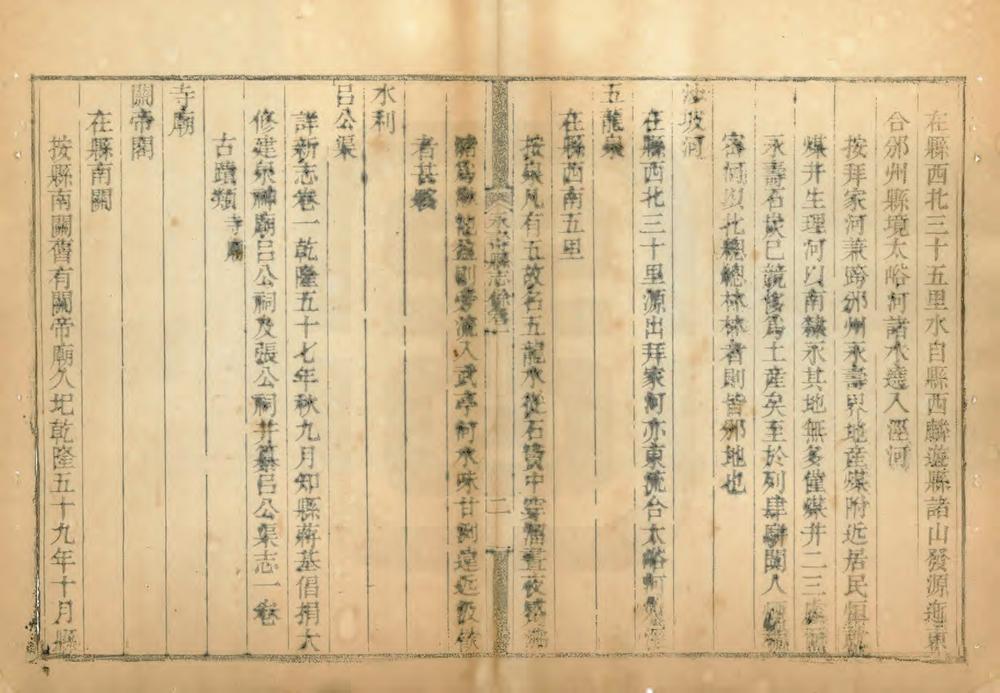 在縣西北三十五里水自縣西麟遊縣諸山發源逦東
合邠州縣境太峪河諸水遶入涇河
按拜家河兼跨邠州永壽界地産煤附近居民恒
煤井生理河以南隸永其地無多僅煤井二三處
永壽石炭已競侈爲土産矣至於列肆闢人
河以北總總林林者則皆邠地也
沙坡河
在縣西北三十里源出拜家河亦東流合太峪河
五龍泉
在縣西南五里
按泉凡有五故名五龍水從石竇中穿溜晝夜
流入武亭河水味甘冽遠近汲飲
者甚衆
水利
呂公渠
詳新志卷一乾隆五十七年秋九月知縣蔣基倡捐大
修建泉神廟呂公祠及張公祠并纂呂公渠志一卷
古蹟類 寺廟
寺廟
關帝閣
在縣南關
按縣南關舊有關帝廟久圮乾隆五十九年十月縣